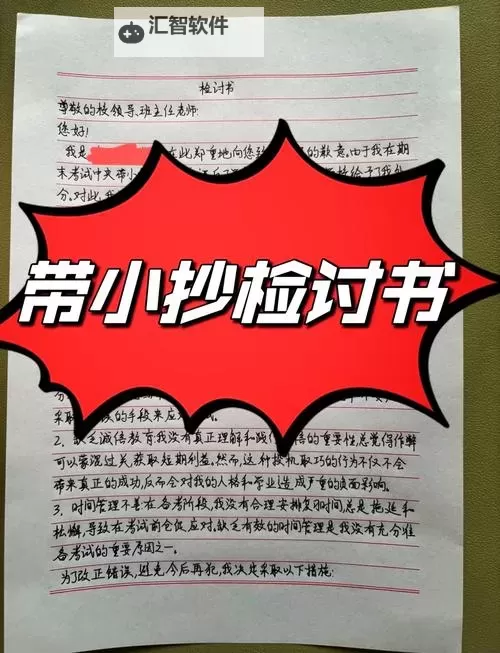 汇智软件
检讨书
尊敬的校领导、班主任老师:
您好!
我是
在此郑重地向您致
的歉意。由于我在期
末考试中夹带小
给予了我处
分。对此,我
带小抄检讨书
采取
的手段来应
2、缺乏诚信教育我没有真正理解和践行
信的重要性,总觉得作弊
可以蒙混过关,获取短期利益。然而,这种投机取巧的行为不仅不会
带来真正的成功,反而会对我的人格和学业造成严重的负面影响。
3、时间管理不善在备考阶段,我没有合理安排复习时间,总是拖延和
松懈,导致在考试前仓促应对。缺乏有效的时间管理是我没有充分准
备考试的重要原因之一。
为了改正错误,避免今后再犯,我决定采取以下措施: